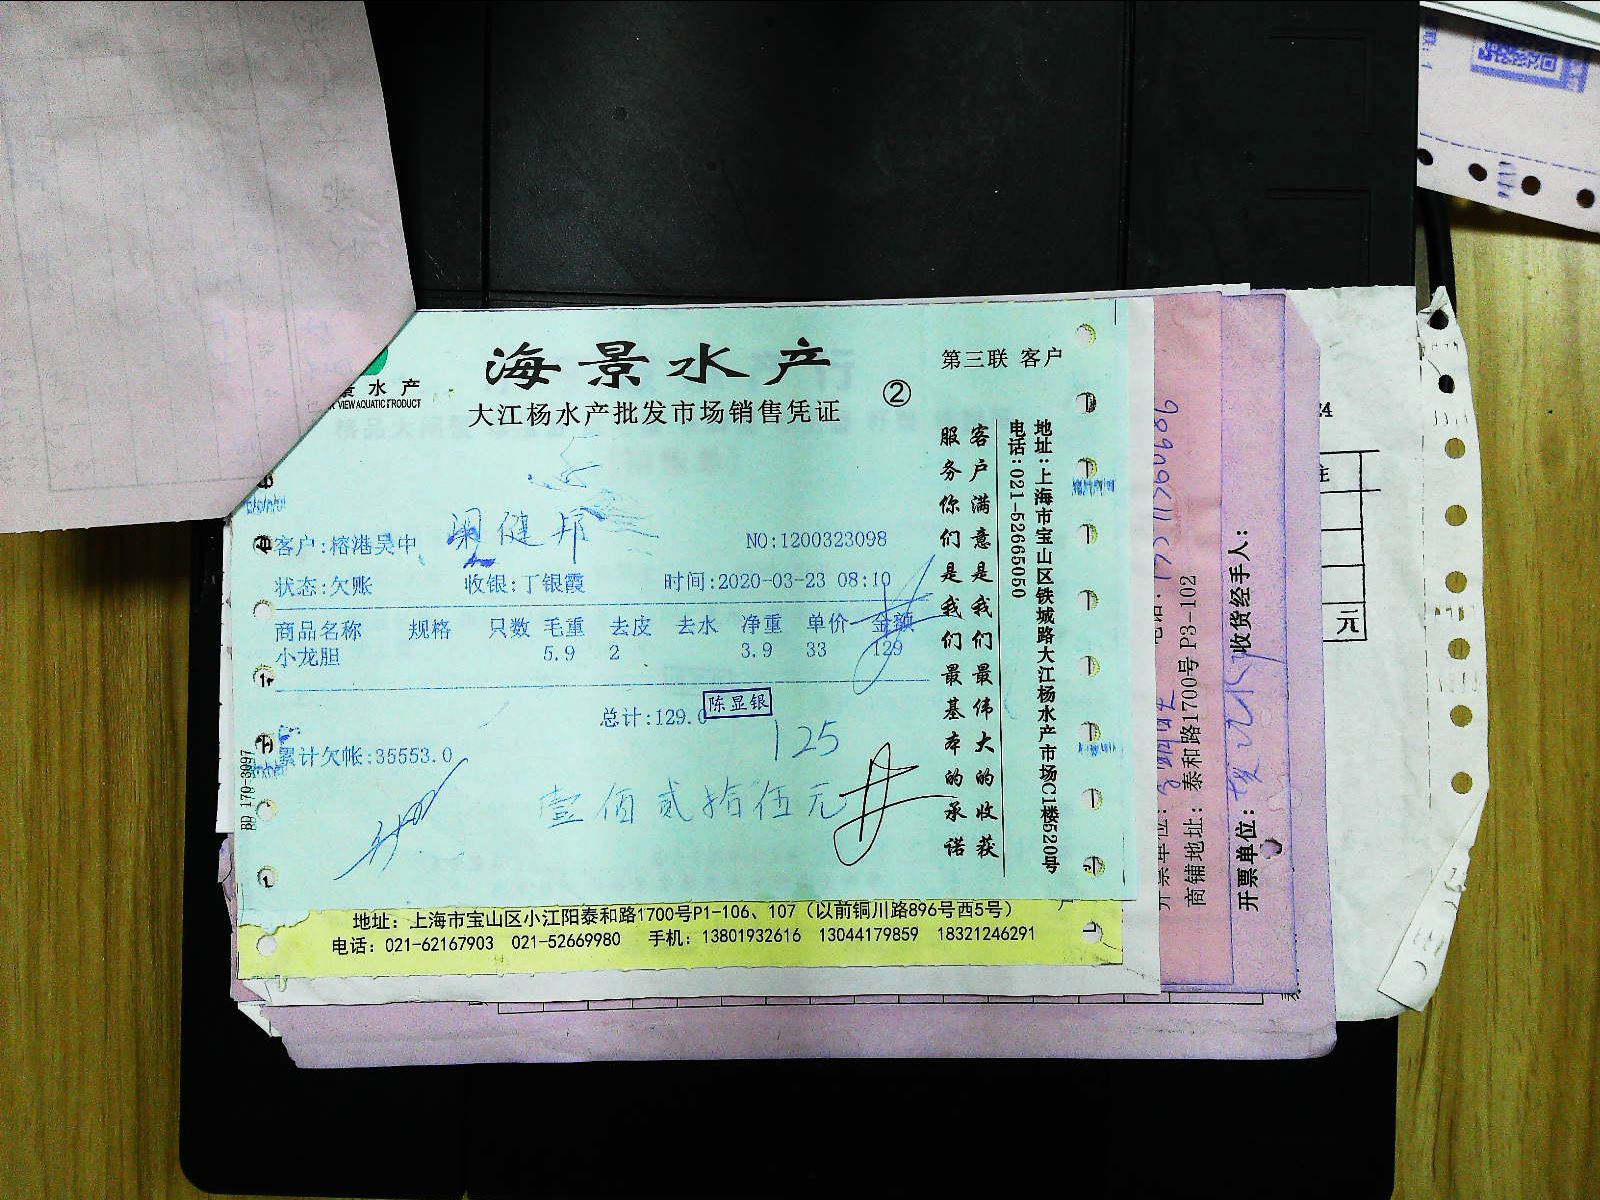 海景水产
第三联 客户
②
景水产
VIEW AQUATIC PRODUCT
大江杨水产批发市场销售凭证
客户:榕港吴中
健邦
NO:1200323098
状态:欠账 收银:丁银霞 时间:2020-03-23 08:10
商品名称 规格 只数 毛重 去皮 去水 净重 单价 金额
小龙胆 5.9 2 3.9 33 129
总计:129.0
陈显银
125
累计欠帐:35553.0
壹佰贰拾伍元
客户满意是我们最伟大的收获
服务你们是我们最基本的承诺
地址:上海市宝山区铁城路大江杨水产市场C1楼520号
电话:021-52665050
BD 170-3097
地址：上海市宝山区小江阳泰和路1700号P1-106、107（以前铜川路896号西5号）
电话：021-62167903 021-52669980 手机：13801932616 13044179859 18321246291
商铺地址：泰和路1700号 P3-102
开票单位：
收货经手人：
元